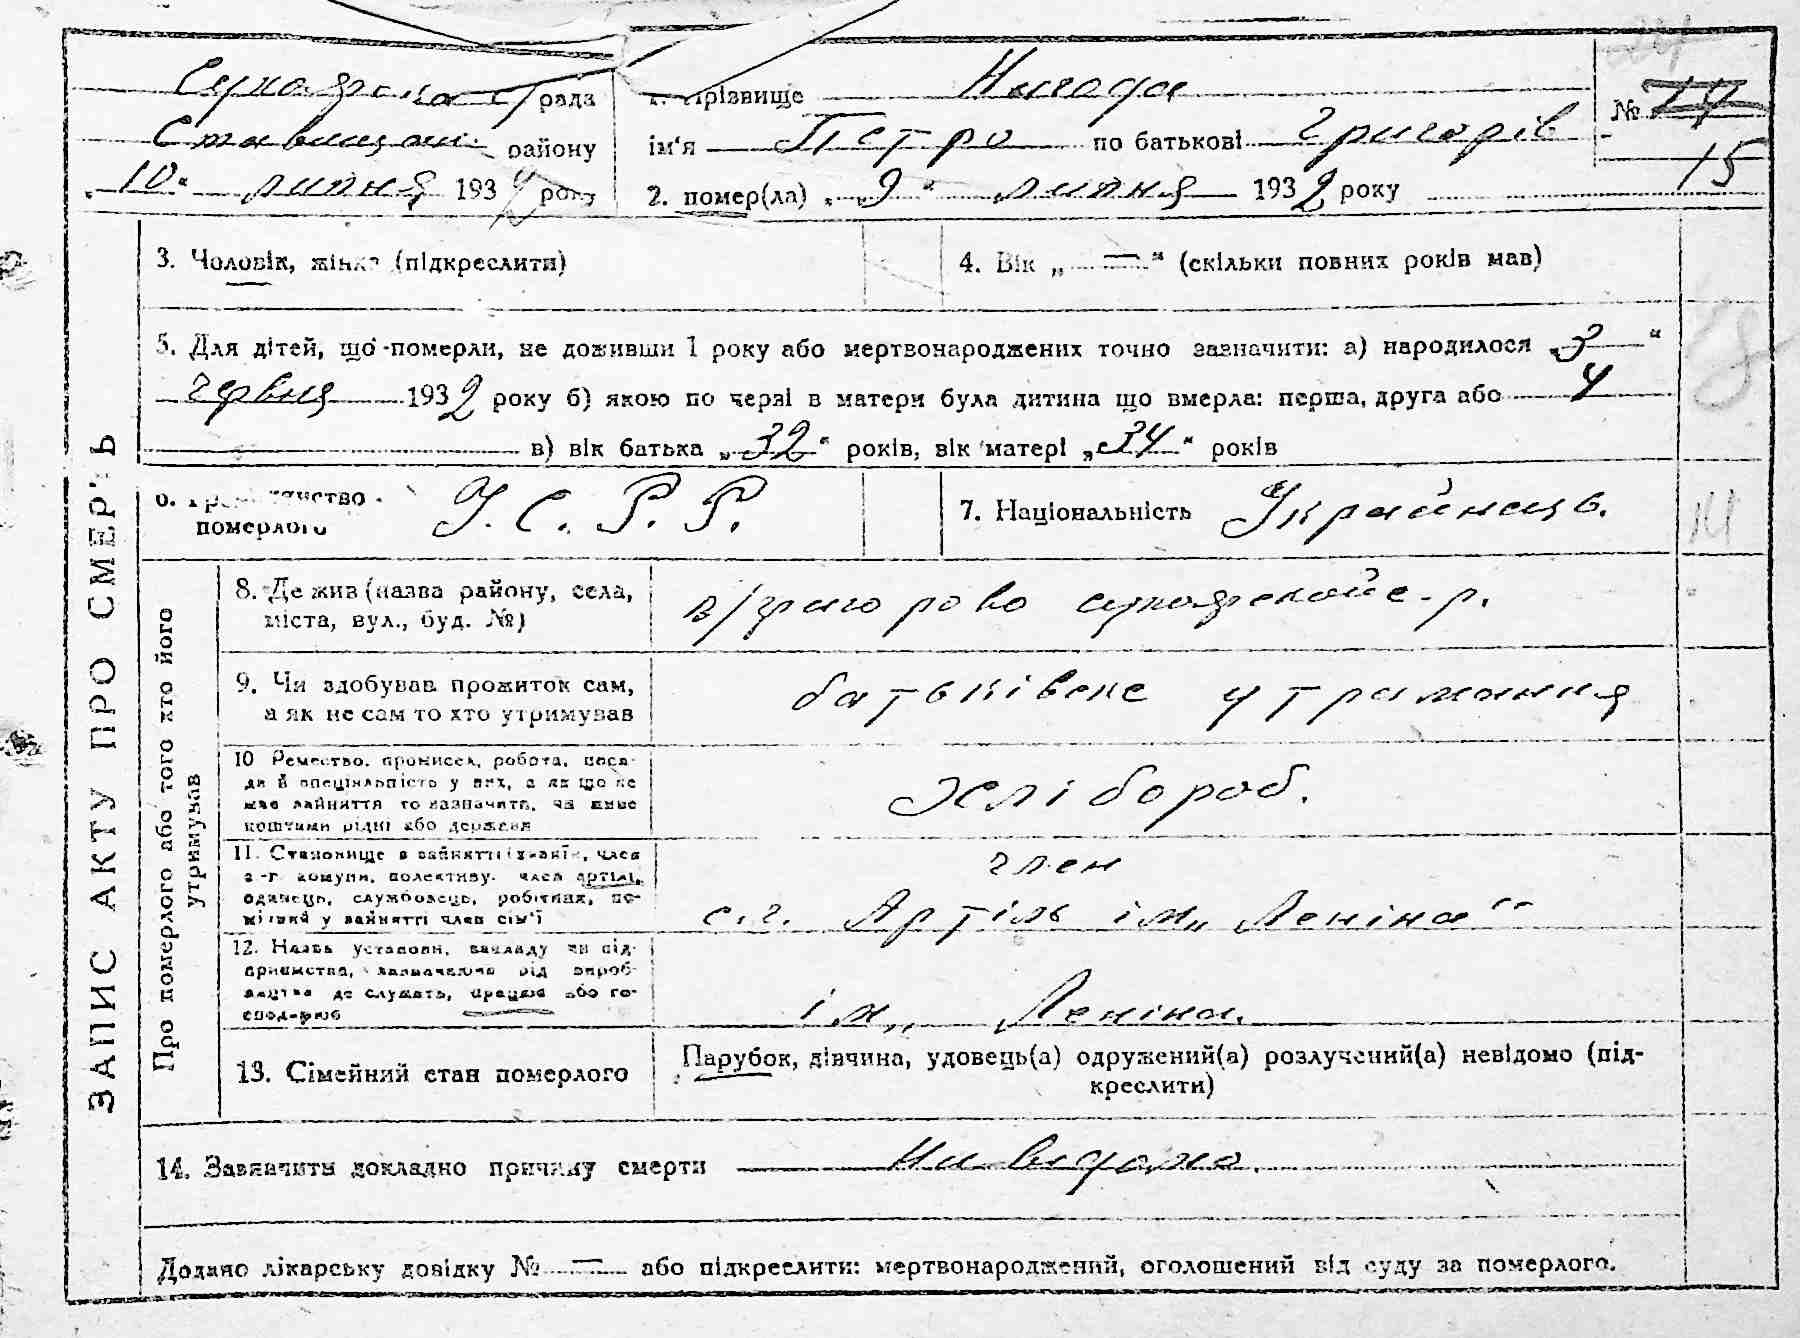 Сухоярська с/рада
Ставищан. району
„10" липня 1932 року
1. Прізвище Нигода
ім'я Петро по батькові Григорів
2. помер(ла) „9" липня 1932 року
№ 14
15
3. Чоловік, жінка (підкреслити)
4. Вік „—" (скільки повних років мав)
5. Для дітей, що померли, не доживши 1 року або мертвонароджених точно зазначити: а) народилося „3"
червня 1932 року б) якою по черзі в матери була дитина що вмерла: перша, друга або 4
в) вік батька „32" років, вік матері „34" років
6. Громадянство
померлого У.С.Р.Р.
7. Національність Українець.
ЗАПИС АКТУ ПРО СМЕРТЬ
Про померлого або того хто його
утримував
8. Де жив (назва району, села,
міста, вул., буд. №)
с-р.
9. Чи здобував прожиток сам,
а як не сам то хто утримував
батьківське утримання
10 Ремество, промисел, робота, поса-
да й спеціяльність у них, а як що не
має зайняття то зазначить, чи живе
коштами рідні або держави
Хлібороб.
11. Становище в зайнятті (хазяїн, член
с-г. комуни, колективу, член артілі,
одинець, службовець, робітник, по-
мічний у зайнятті член сім'ї
член
с.г. Артіль ім „Леніна"
12. Назва установи, закладу чи під-
приємства, зазначаючи рід вироб-
ництва де служить, працює або го-
сподарює
ім „ Леніна.
13. Сімейний стан померлого
Парубок, дівчина, удовець(а) одружений(а) розлучений(а) невідомо (під-
креслити)
14. Зазначити докладно причину смерти Ни відомо.
Додано лікарську довідку № — або підкреслити: мертвонароджений, оголошений від суду за померлого.